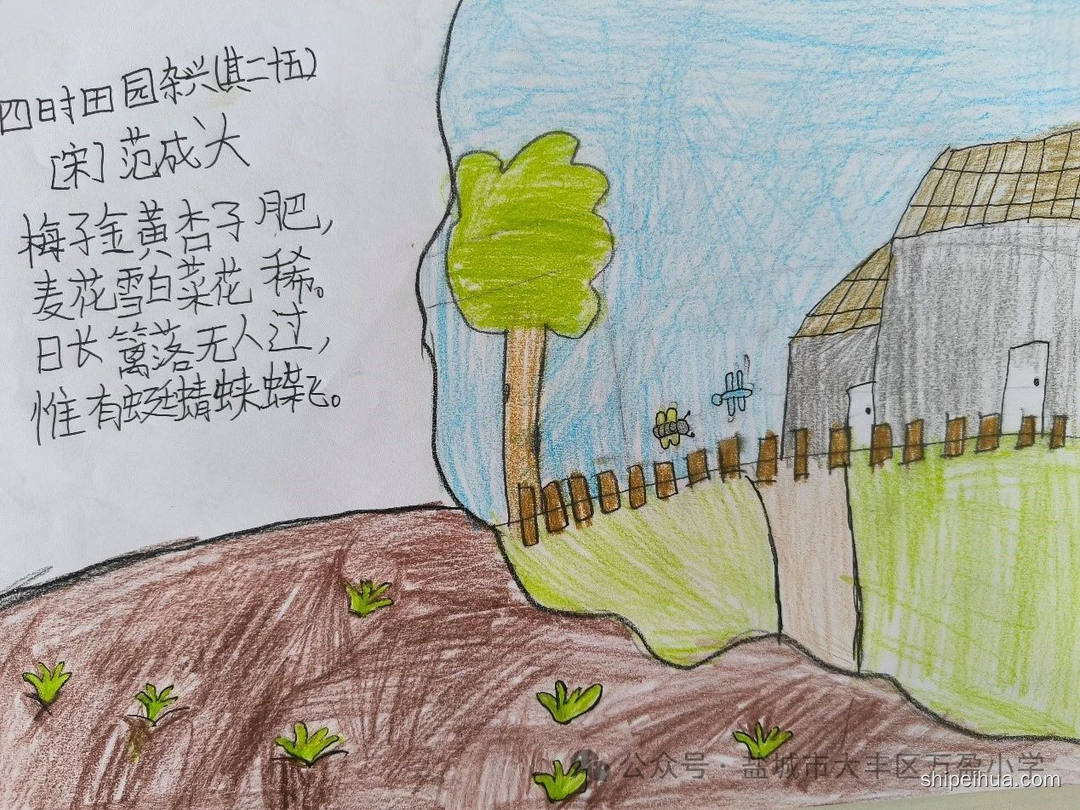 四时田园杂兴(其二十五)
[宋]范成大
梅子金黄杏子肥,
麦花雪白菜花稀。
日长篱落无人过,
惟有蜓蜻蛱蝶飞。
公众号·盐城市大丰区万盈小学
shipeihua.com